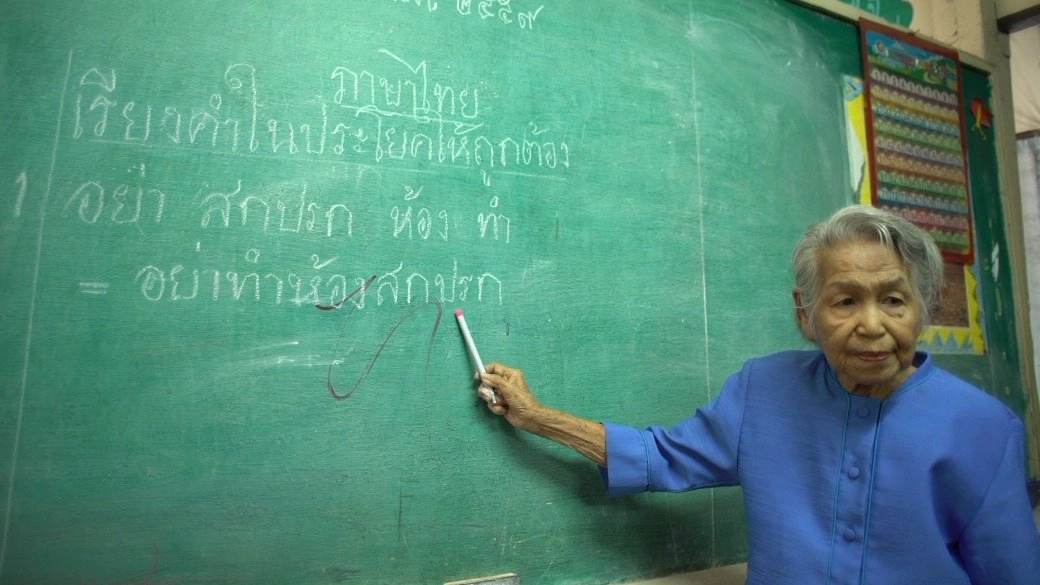 ๒๕๕๙
ภาษาไทย
เรียงคำในประโยคให้ถูกต้อง
1 อย่า สกปรก ห้อง ทำ
= อย่าทำห้องสกปรก